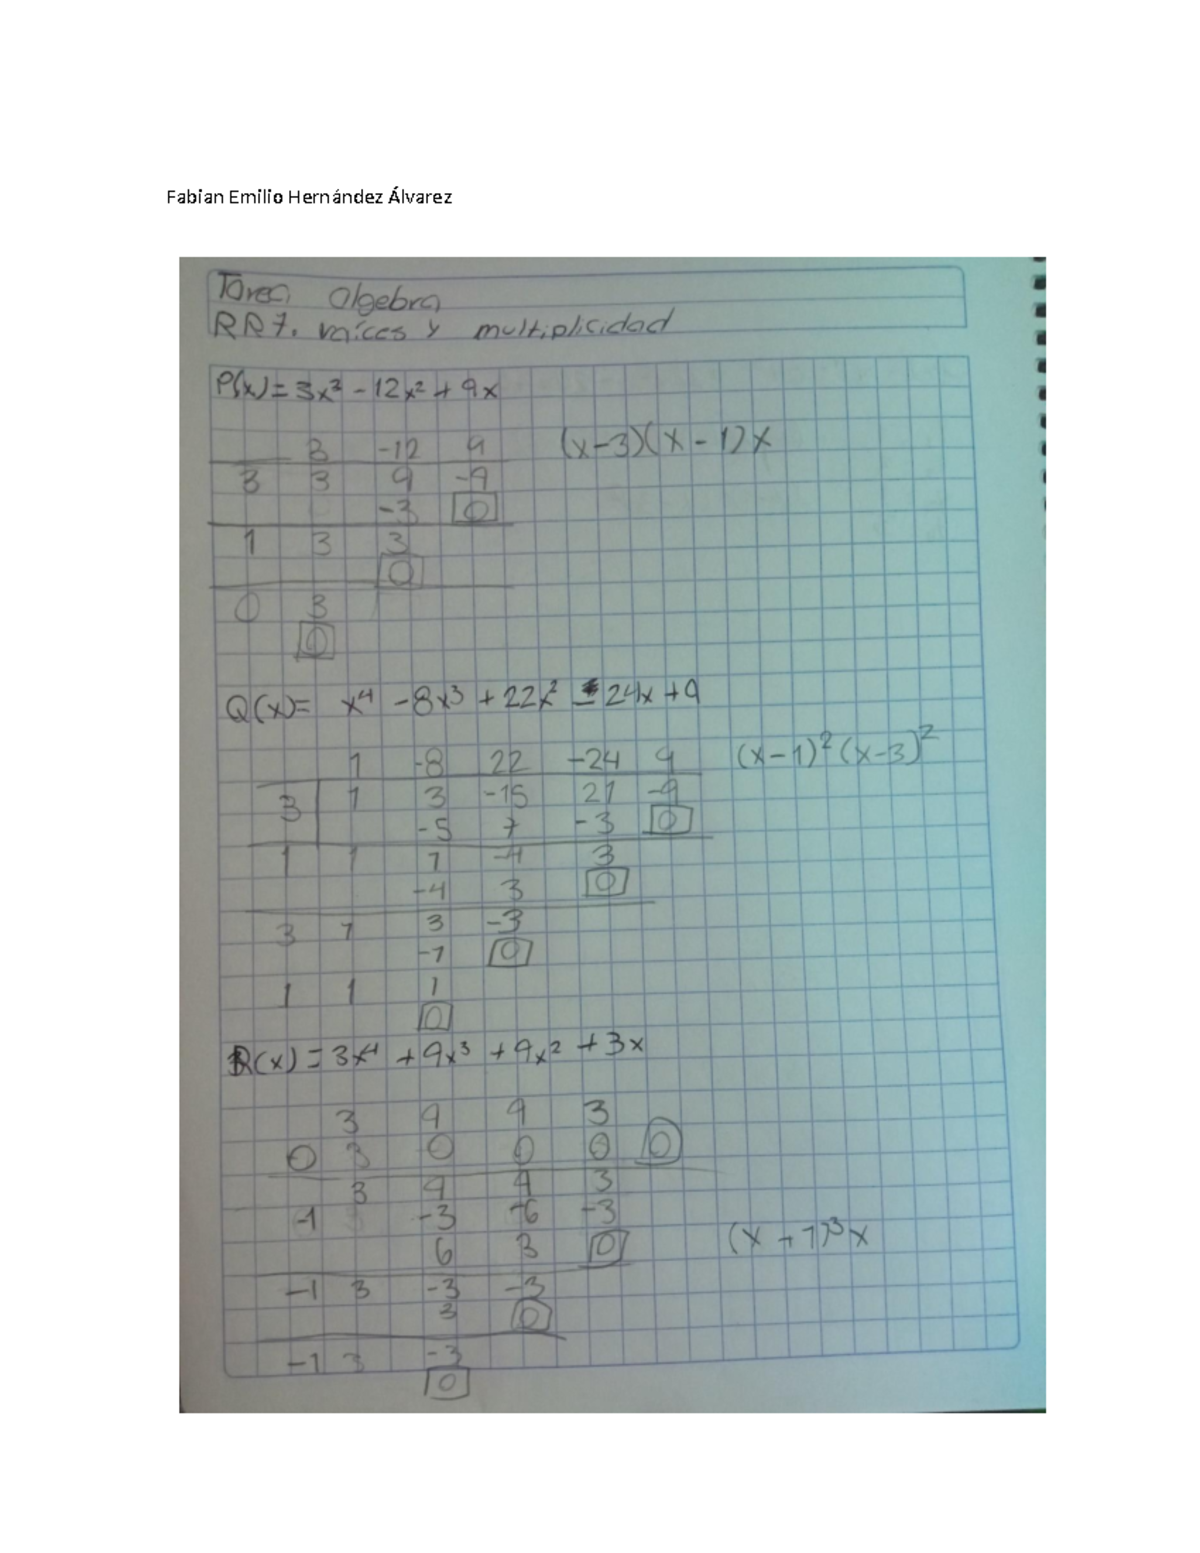 Fabian Emilio Hernández Álvarez
Tarea algebra
RR7. raíces y multiplicidad
P(x) = 3x³ - 12x² + 9x
3 -12 9 (x-3)(x-1)x
3 3 9 -9
-3 0
1 3 3
0
0 3
0
Q(x)= x⁴ - 8x³ + 22x² - 24x + 9
1 -8 22 -24 9 (x-1)² (x-3)²
3 1 3 -15 21 -9
-5 7 -3 0
1 1 1 -4 3
-4 3 0
3 1 3 -3
-1 0
1 1 1
0
R(x) = 3x⁴ + 9x³ + 9x² + 3x
3 9 9 3
0 3 0 0 0 0
3 9 9 3
-1 -3 -6 -3
6 3 0 (x+1)³x
-1 3 -3 -3
3 0
-1 3 -3
0